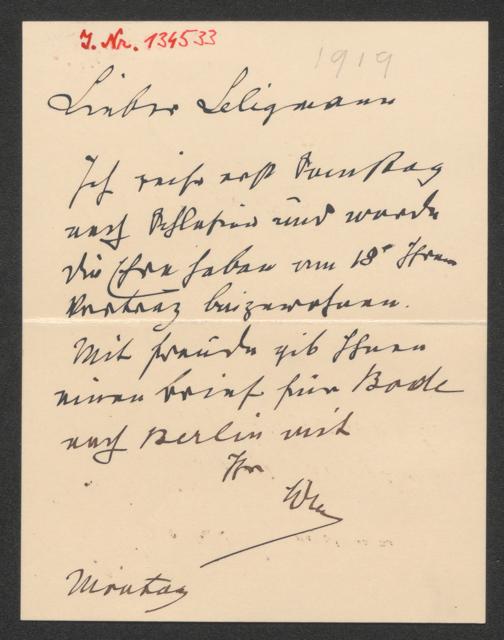 J. Nr. 134533
1919
Lieber Seligmann
Ich reise erst Samstag
nach Schlesien und werde
die Ehre haben am 18t Ihrem
Vortrag beizuwohnen.
Mit Freude gib Ihnen
einen Brief für Bode
nach Berlin mit
Ihr
Montag